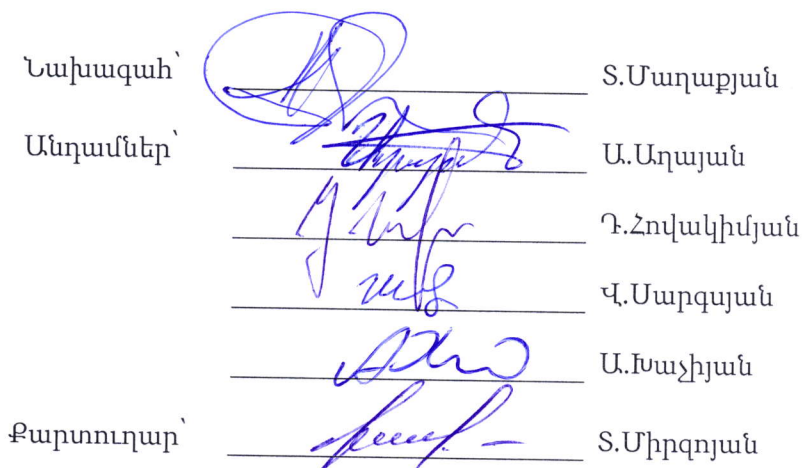 Նախագահ՝ Տ.Մաղաքյան
Անդամներ՝ Ա.Աղայան
Դ.Հովակիմյան
Վ.Սարգսյան
Ա.Խաչիյան
Քարտուղար՝ Տ.Միրզոյան